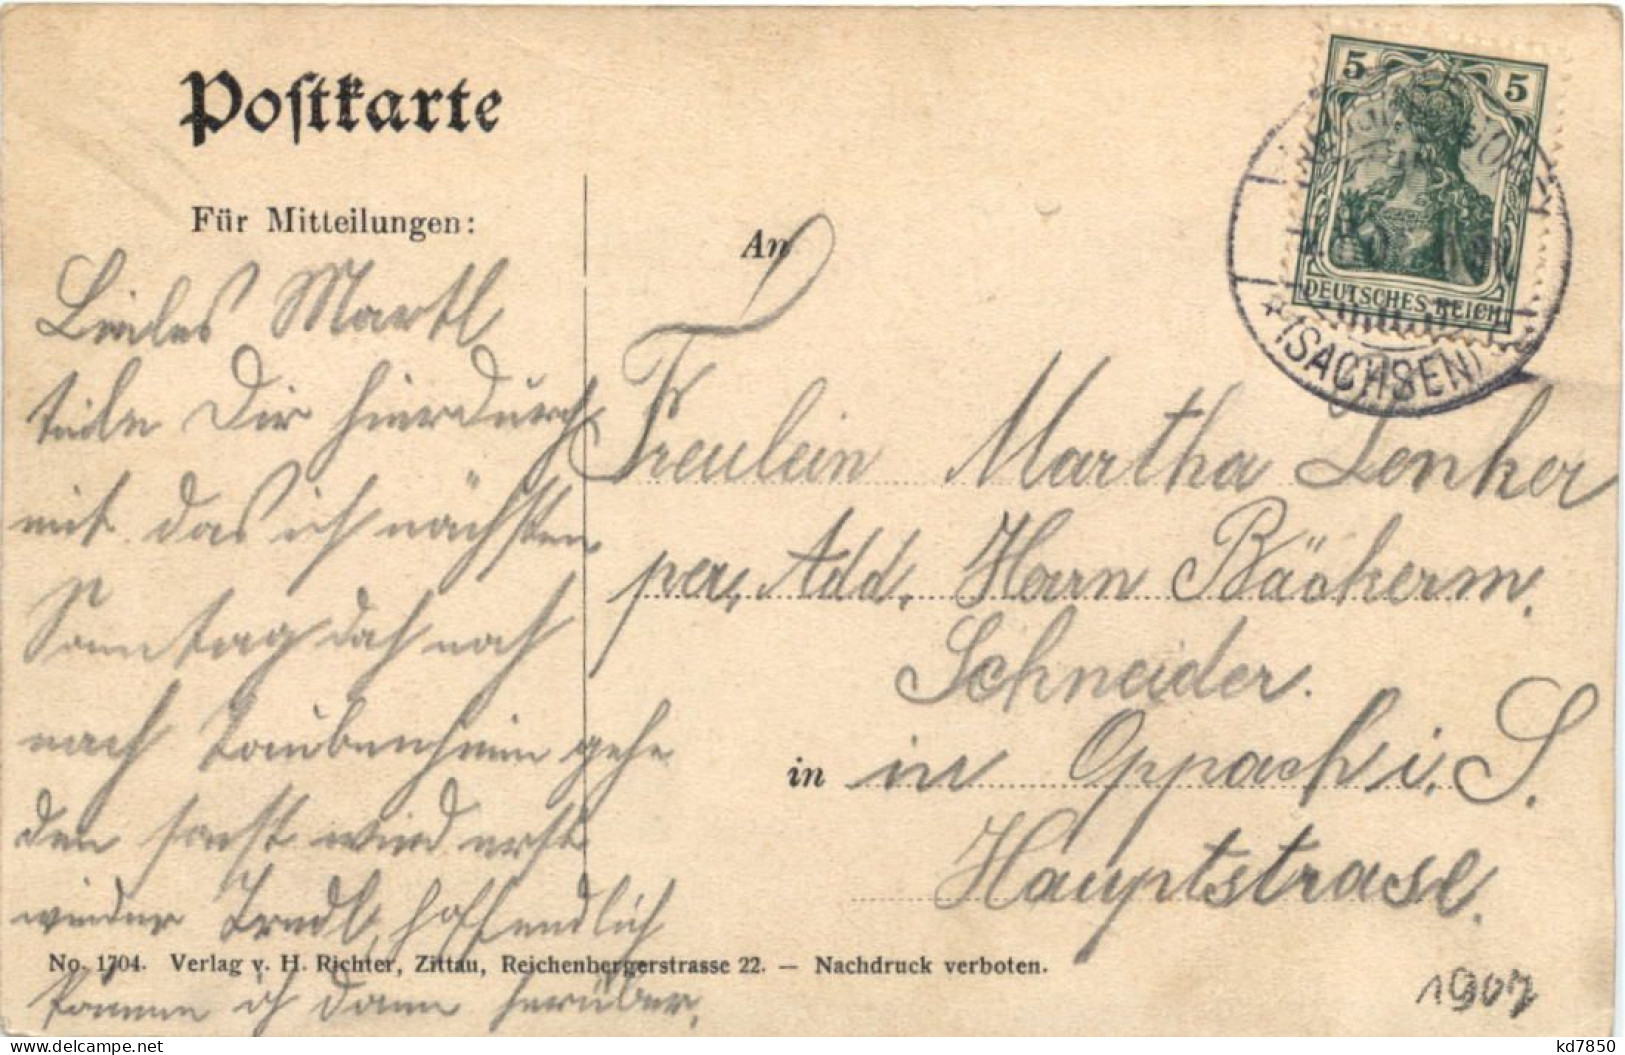 Postkarte
Für Mitteilungen:
Liebes Martl,
teile Dir hierdurch
mit das ich nächsten
Sonntag daß noch
nach Taubenheim gehe
den sonst wird erst
wieder, hoffendlich
komme ich dann herüber.
An
Freulein Martha Lenker
per, Add. Herrn Bäckerm.
Schneider.
in in Oppach i. S.
Hauptstrase.
5 5
DEUTSCHES REICH
(SACHSEN)
No. 1704. Verlag v. H. Richter, Zittau, Reichenbergerstrasse 22. — Nachdruck verboten.
1907
www.delcampe.net
kd7850